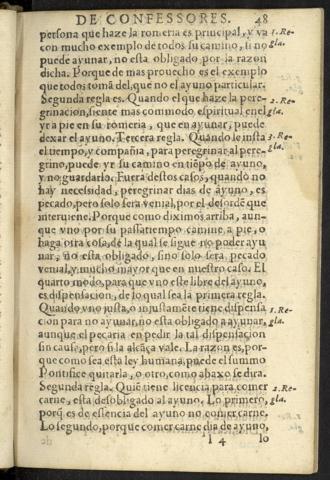 DE CONFESSORES. 48
persona que haze la romeria es principal, y va 1. Re-
con mucho exemplo de todos su camino, si no gla.
puede ayunar, no esta obligado por la razon
dicha. Porque de mas prouecho es el exemplo
que todos tomã del, que no el ayuno particular.
Segunda regla es. Quando el que haze la pere- 2. Re-
grinacion, siente mas commodo espiritual en el gla.
yr a pie en su romeria, que en ayunar, puede
dexar el ayuno. Tercera regla. Quando lo insta 3. Re-
el tiempo, y compañia, para peregrinar al pere- gla.
grino, puede yr su camino en tiẽpo de ayuno,
y no guardarlo. Fuera destos casos, quando no
hay necessidad, peregrinar dias de ayuno, es
pecado, pero solo sera venial, por el desordẽ que
interuiene. Porque como diximos arriba, aun-
que vno por su passatiempo camine a pie, o
haga otra cosa, de la qual se sigue no poder ayu
nar, no esta obligado, sino solo sera pecado
venial, y mucho mayor que en nuestro caso. El
quarto modo, para que vno este libre del ayuno,
es dispensacion, de lo qual sea la primera regla.
Quando vno justa, o injustamẽte tiene dispensa 1. Re-
cion para no ayunar, no esta obligado a ayunar, gla.
aunque el pecaria en pedir la tal dispensacion
sin causa, pero si la alcãça vale. La razon es, por-
que como sea esta ley humana, puede el summo
Pontifice quitarla, o otro, como abaxo se dira.
Segunda regla. Quiẽ tiene licencia para comer 2. Re-
carne, esta desobligado al ayuno. Lo primero, gla.
porq̃ es de essencia del ayuno no comer carne.
Lo segundo, porque comer carne dia de ayuno,
I 4 lo